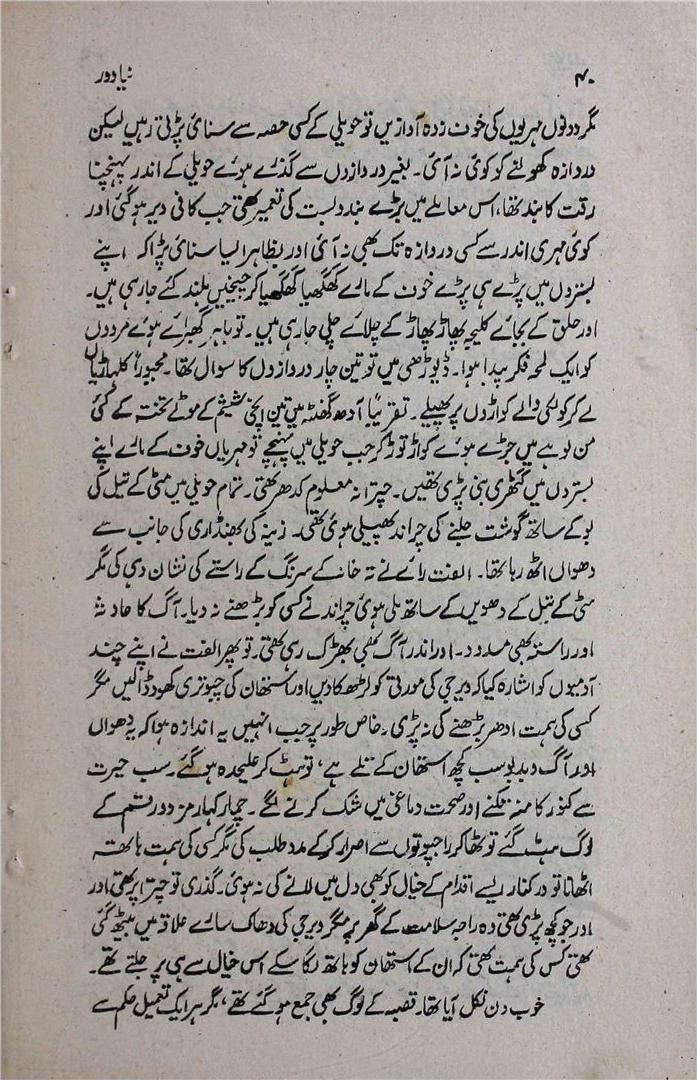 ۴۰
نیا دور
مگر دونوں مہریوں کی خوف زدہ آوازیں تو حویلی کے کسی حصہ سے سنائی پڑتی رہیں لیکن
دروازہ کھولنے کو کوئی نہ آئی۔ بغیر دروازوں سے گذرے ہوئے حویلی کے اندر پہنچنا
رقت کا بند تھا، اس معاملے میں بڑے بندوبست کی تعمیر تھی جب کافی دیر ہو گئی اور
کوئی مہری اندر سے کسی دروازہ تک بھی نہ آئی اور بظاہر ایسا سنائی پڑا کہ اپنے
بستروں میں پڑے ہی پڑے خوف کے مارے گھگھیا گھگھیا کر چیخیں بلند کئے جا رہی ہیں۔
اور حلق کے بجائے کلیجہ پھاڑ پھاڑ کے چلائے چلی جا رہی ہیں۔ تو باہر گھبرائے ہوئے مردوں
کو ایک لمحہ فکر پیدا ہوا۔ ڈیوڑھی میں تو تین چار دروازوں کا سوال تھا۔ مجبوراً کلہاڑیاں
لے کر کولکی والے کواڑوں پر پھیلے۔ تقریباً آدھ گھنٹہ میں تین انچی شیشم کے موٹے تختہ کے کئی
من لوہے میں جڑے ہوئے کواڑ توڑ کر جب حویلی میں پہنچے تو مہریاں خوف کے مارے اپنے
بستروں میں گٹھری بنی پڑی تھیں۔ چترا نہ معلوم کدھر تھی۔ تمام حویلی میں مٹی کے تیل کی
بو کے ساتھ گوشت جلنے کی چراند پھیلی ہوئی تھی۔ زینہ کی بھنڈاری کی جانب سے
دھواں اٹھ رہا تھا۔ الفت رائے نے تہ خانہ کے سرنگ کے راستے کی نشان دہی کی مگر
مٹی کے تیل کے دھویں کے ساتھ ملی ہوئی چراند نے کسی کو بڑھنے نہ دیا۔ آگ کا حادثہ
اور راستہ بھی مسدود۔ اور اندر آگ بھی بھڑک رہی تھی۔ تو پھر الفت نے اپنے چند
آدمیوں کو اشارہ کیا کہ ویر جی کی مورتی کو لڑھکا دیں اور استھان کی چبوتری کھود ڈالیں مگر
کسی کی ہمت ادھر بڑھنے کی نہ پڑی۔ خاص طور پر جب انہیں یہ اندازہ ہوا کہ یہ دھواں
اور آگ و بدبو سب کچھ استھان کے تلے ہے، تو ہٹ کر علیحدہ ہو گئے۔ سب حیرت
سے کنور کا منہ تکنے اور صحت دماغی میں شک کرنے لگے۔ چمار کہار مزدور قسم کے
لوگ ہٹ گئے تو ٹھاکر راجپوتوں سے اصرار کر کے مدد طلب کی مگر کسی کی ہمت ہاتھ
اٹھانا تو درکنار ایسے اقدام کے خیال کو بھی دل میں لانے کی نہ ہوئی۔ گذری تو چترا پر تھی اور
اور جو کچھ پڑی تھی وہ راجہ سلامت کے گھر پر مگر ویر جی کی دھاک سارے علاقہ میں بیٹھ گئی
تھی کس کی ہمت تھی کہ ان کے استھان کو ہاتھ لگا سکے اس خیال سے ہی پر جلتے تھے۔
خوب دن نکل آیا تھا۔ قصبہ کے لوگ بھی جمع ہو گئے تھے، مگر ہر ایک تعمیل حکم سے